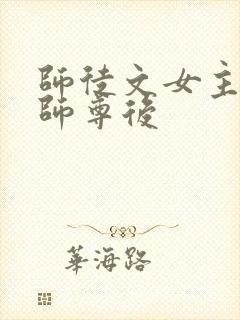 師徒文女主
師尊後
華海路